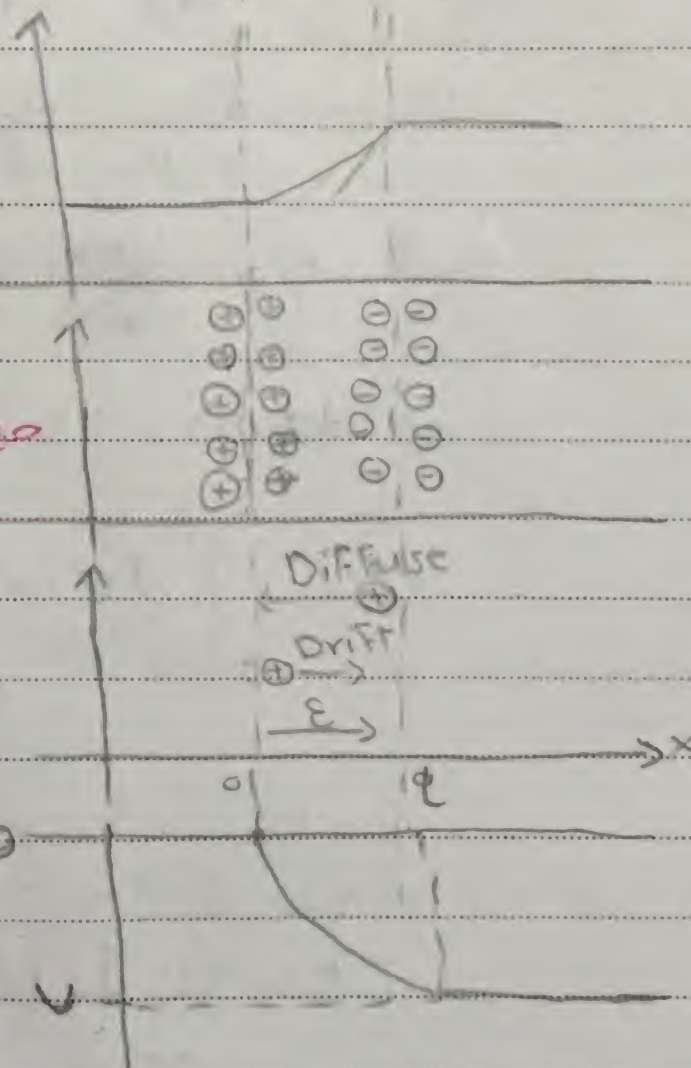 Diffulse
Drift
ε
x
0